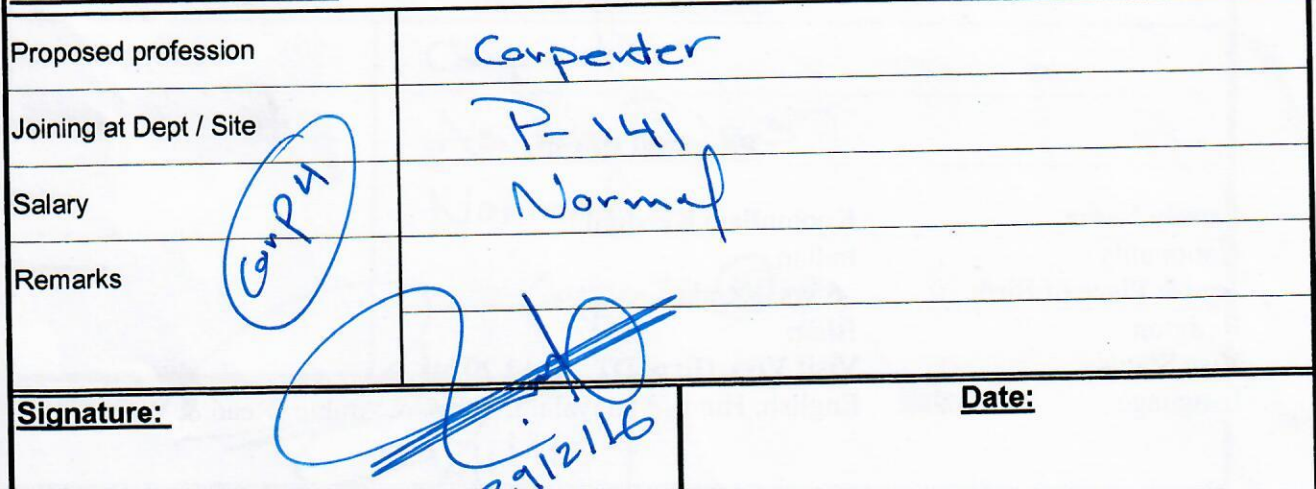 Proposed profession Carpenter
Joining at Dept / Site P-141
Salary Normal
Remarks
Signature: Date: